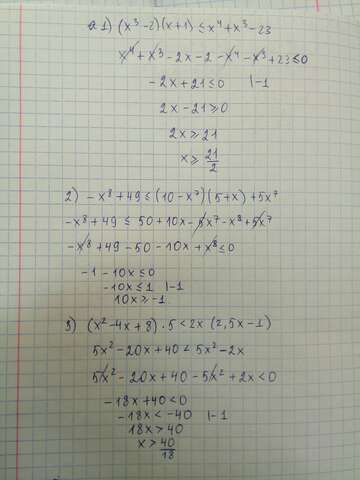 № 1) (x³-2)(x+1) ≤ x⁴+x³-23
x⁴+x³-2x-2-x⁴-x³+23≤0
-2x+21≤0 |-1
2x-21≥0
2x≥21
x≥ 21/2
2) -x⁸+49≤(10-x⁷)(5+x)+5x⁷
-x⁸+49≤50+10x-5x⁷-x⁸+5x⁷
-x⁸+49-50-10x+x⁸≤0
-1-10x≤0
-10x≤1 |-1
10x≥-1
3) (x²-4x+8)·5<2x(2,5x-1)
5x²-20x+40<5x²-2x
5x²-20x+40-5x²+2x<0
-18x+40<0
-18x<-40 |-1
18x>40
x> 40/18